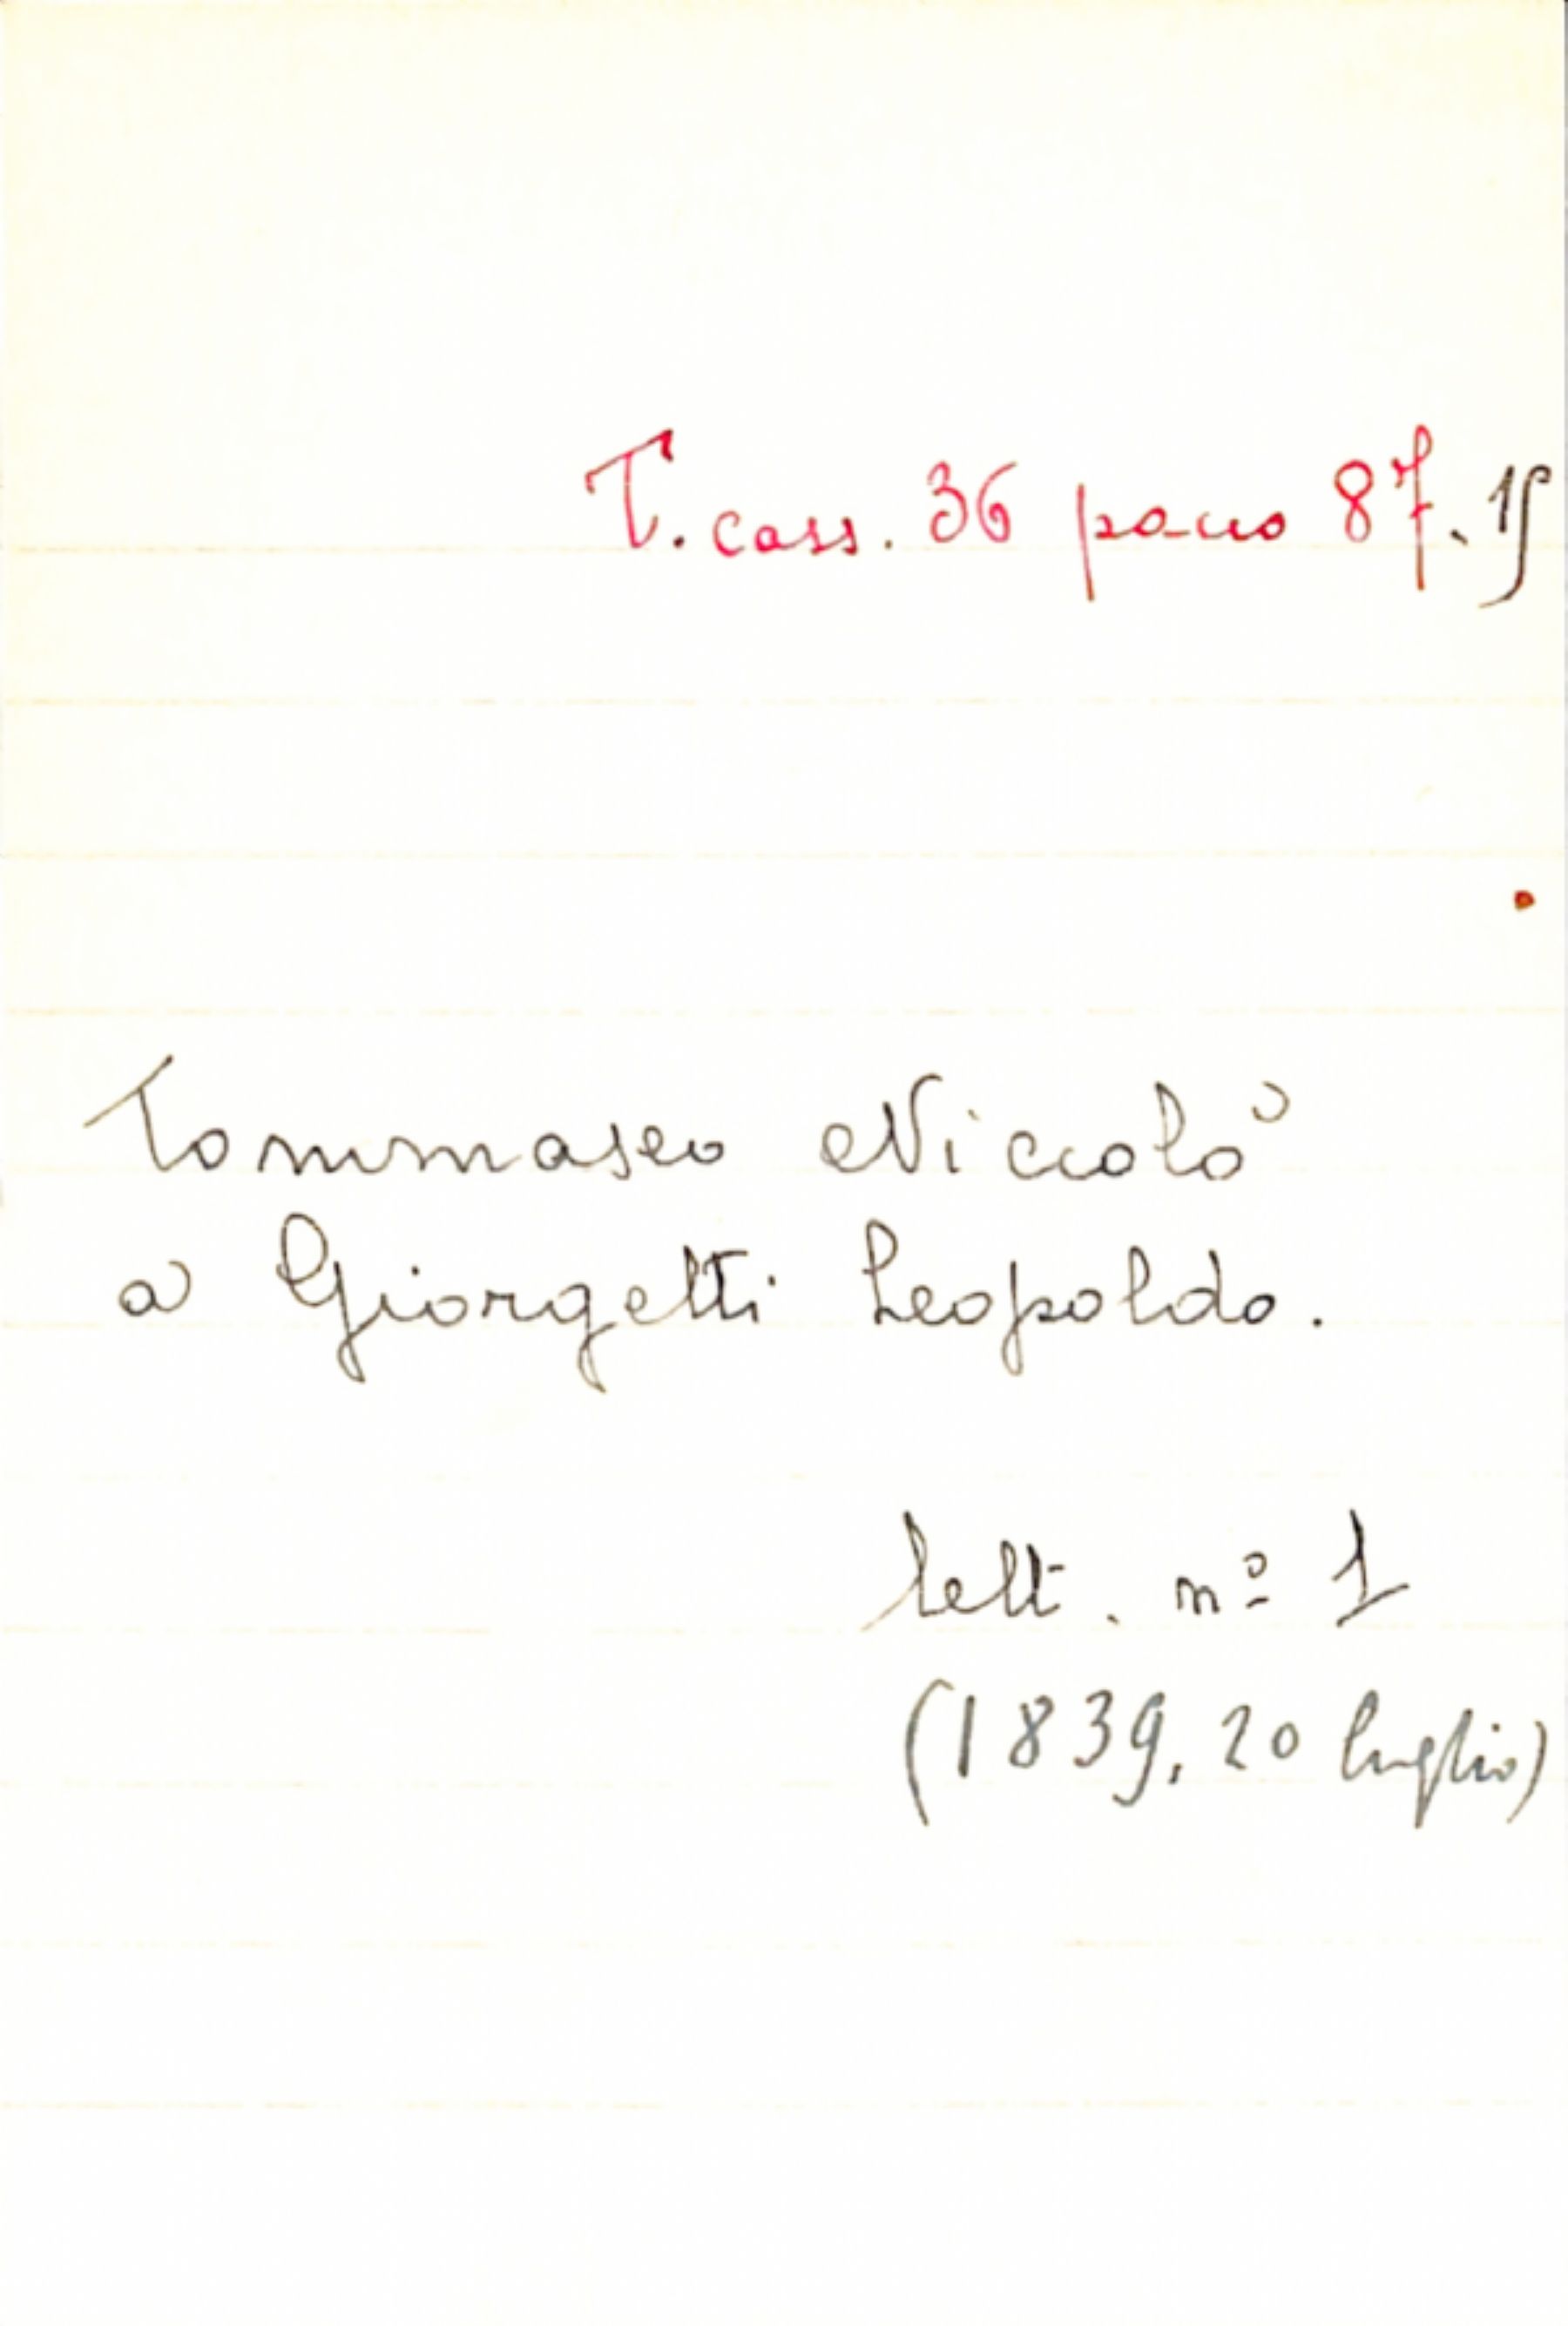 T. cass. 36 pacco 87. 15
Tommaseo Niccolò
a Giorgetti Leopoldo.
lett. nº 1
(1839, 20 luglio)